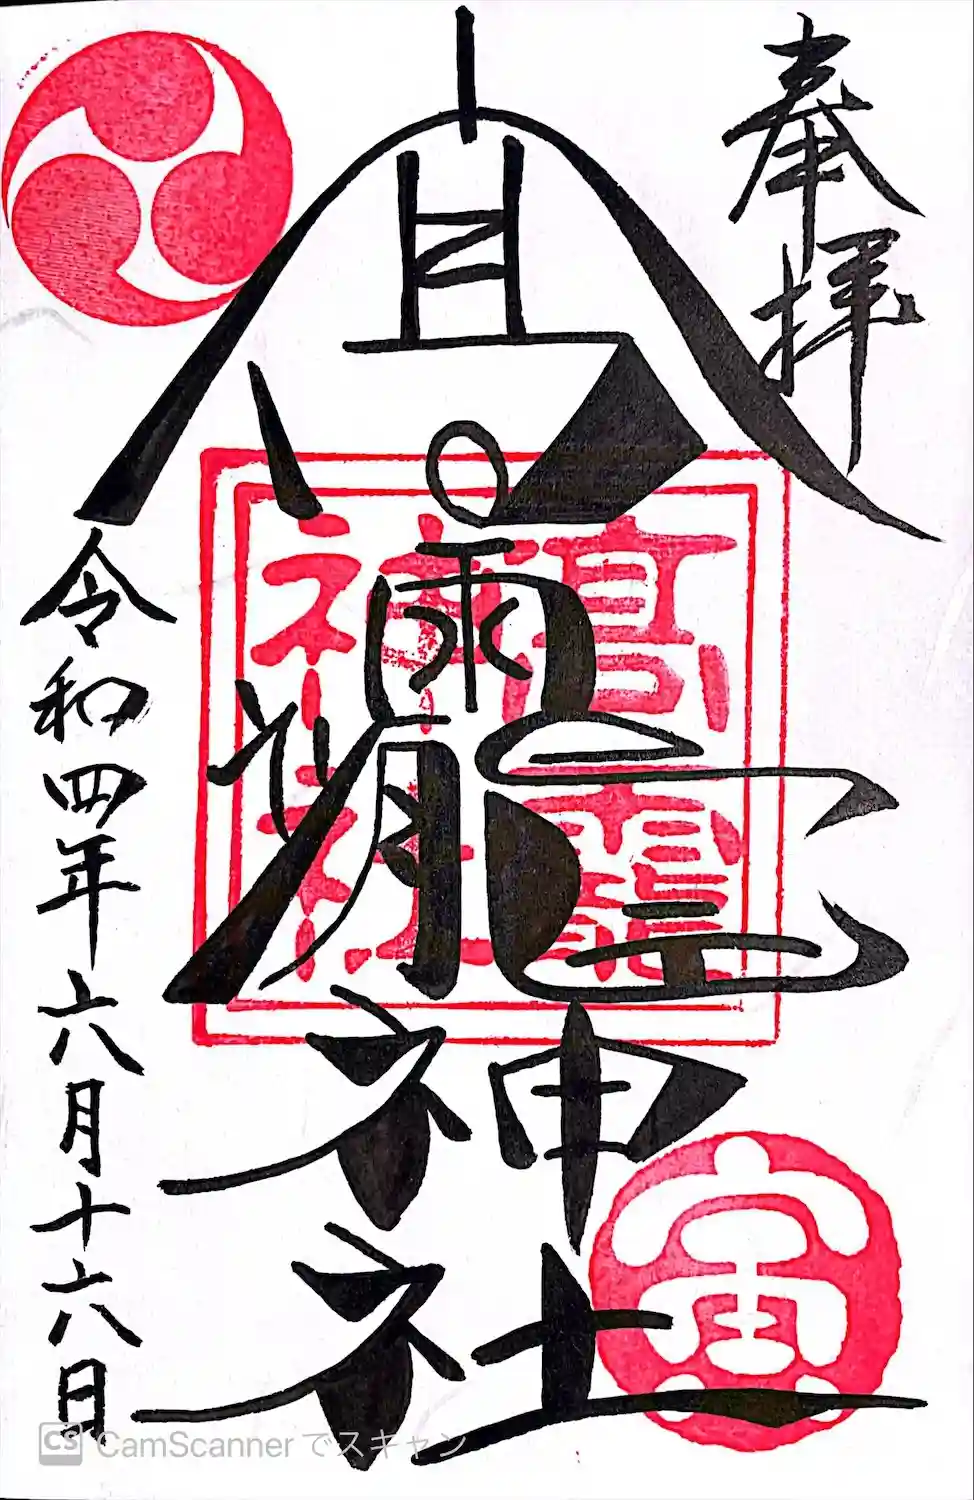 奉拝
髙龗神社
髙龗
神社
寅
令和四年六月十六日
CS CamScannerでスキャン